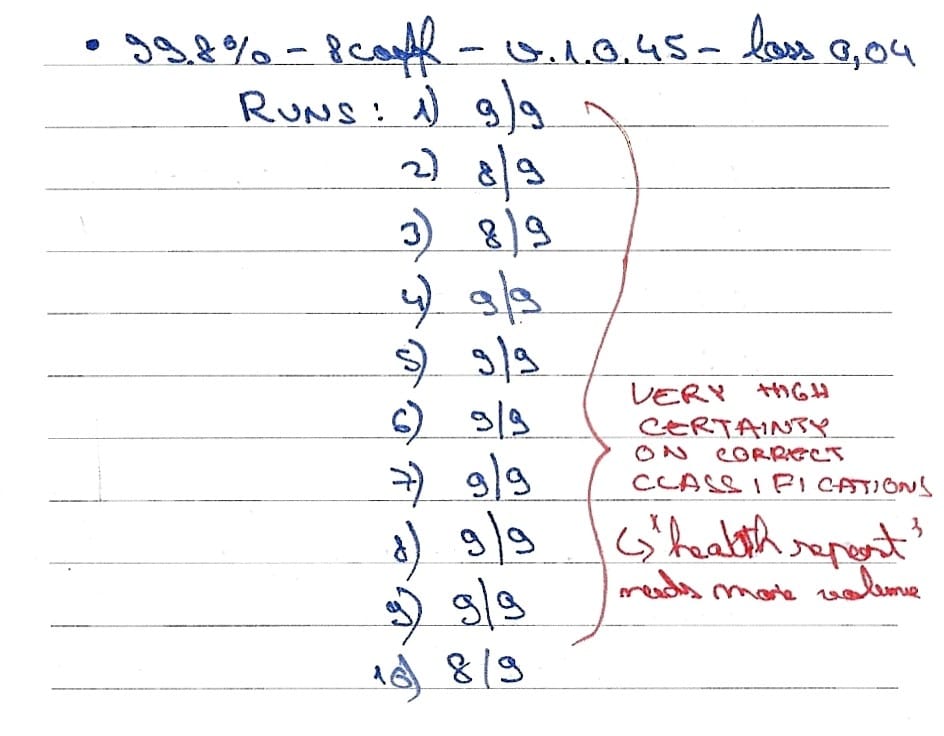 • 99.8% - 8coeff - v.1.0.45 - loss 0,04
RUNS: 1) 9/9
2) 8/9
3) 8/9
4) 9/9
5) 9/9
6) 9/9
7) 9/9
8) 9/9
9) 9/9
10) 8/9
VERY HIGH
CERTAINTY
ON CORRECT
CLASSIFICATIONS
↳ "health report"
needs more volume